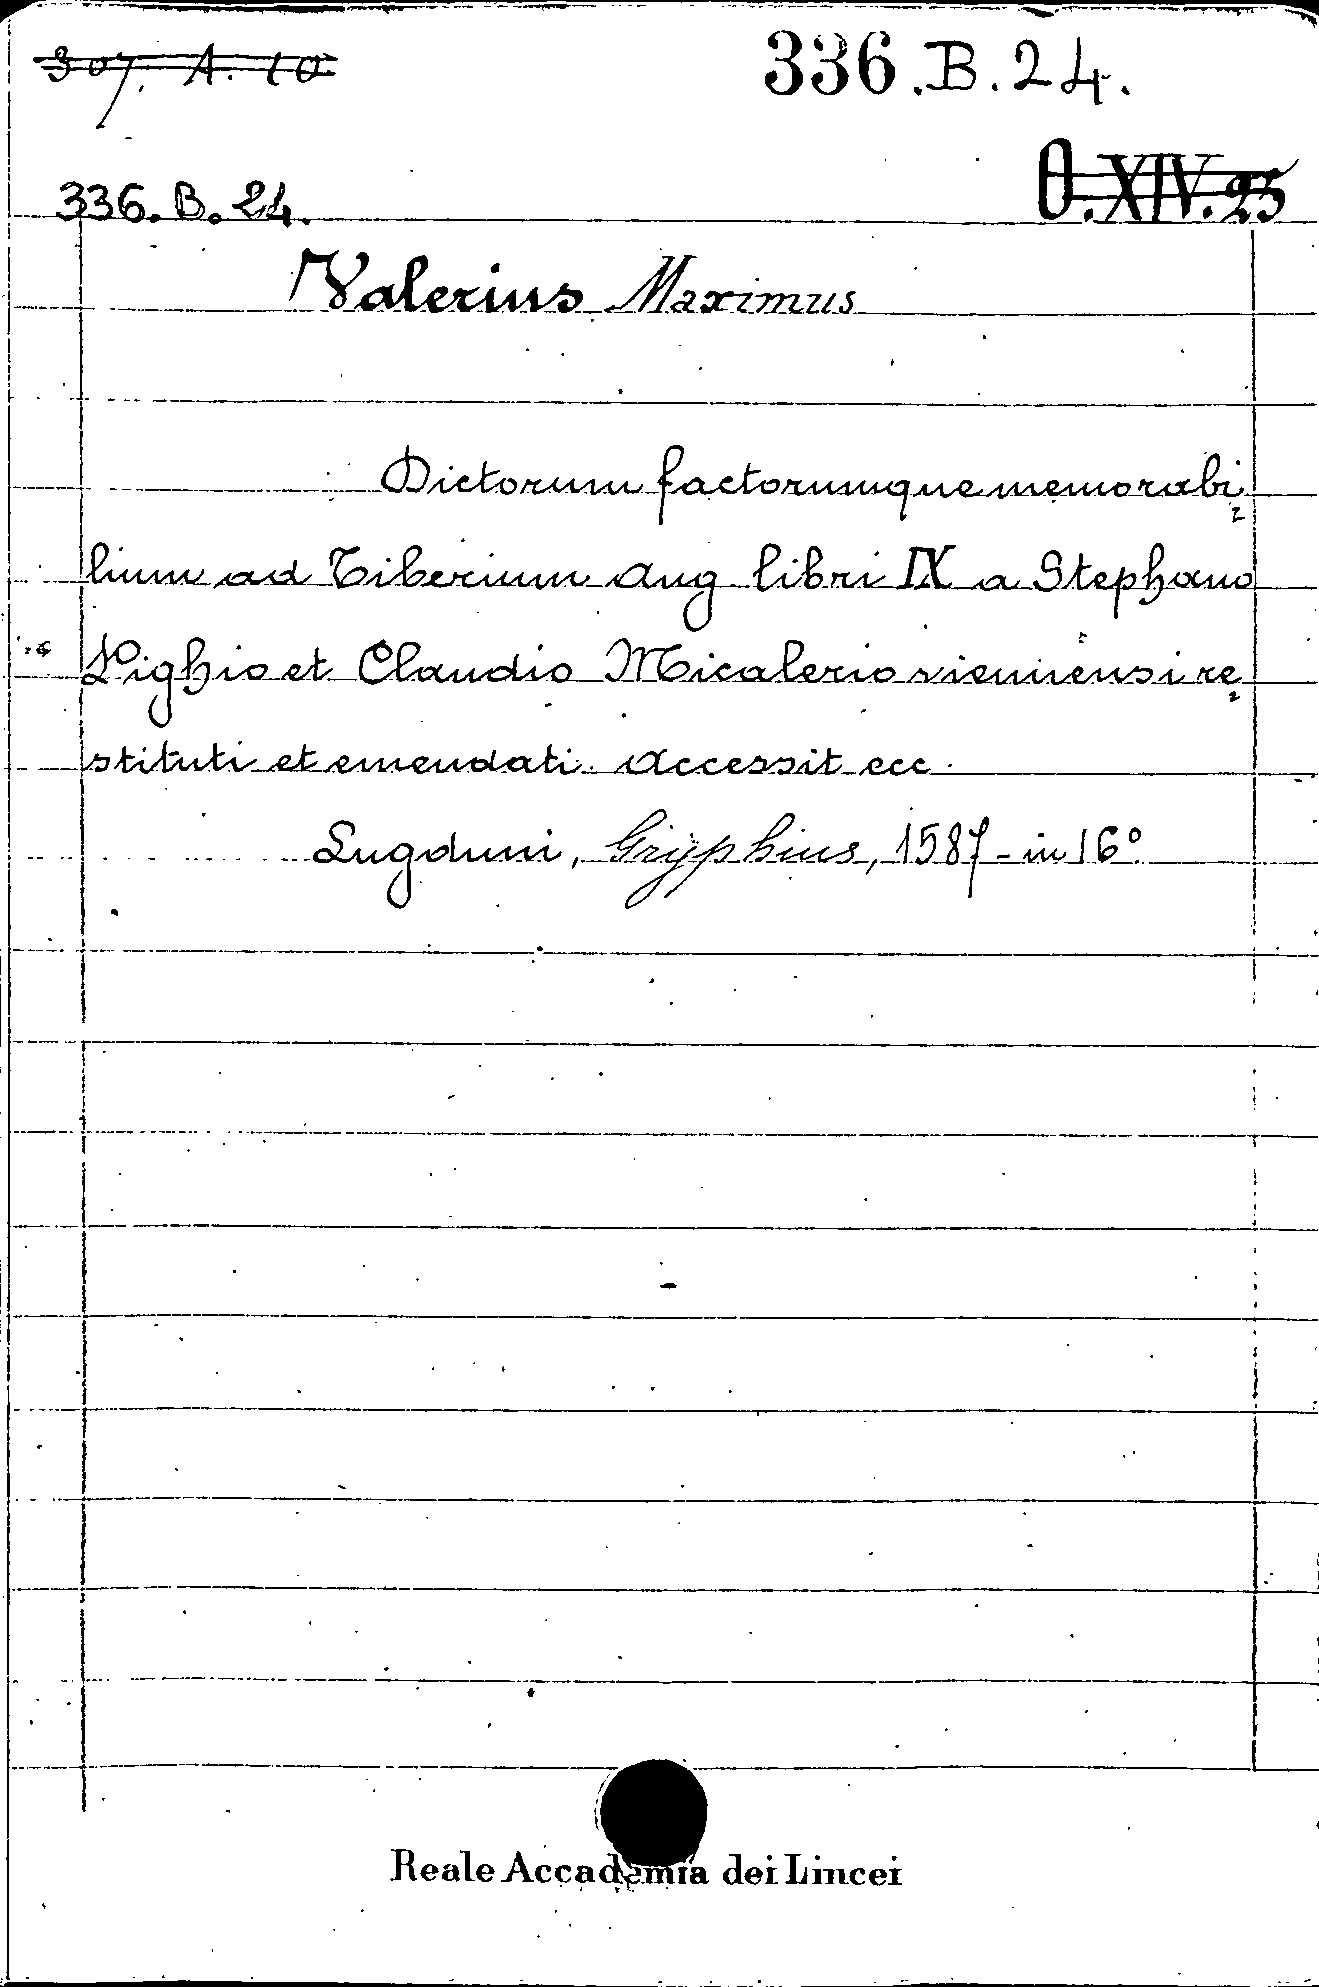 307. A. 10
336.B.24.
336.B.24.
O.XIV.25
Valerius Maximus
Dictorum factorumque memorabi
lium ad Tiberium Aug libri IX a Stephano
Pighio et Claudio Micalerio viennensi re
stituti et emendati. Accessit ecc.
Lugduni, Gryphius, 1587 - in 16°.
Reale Accademia dei Lincei